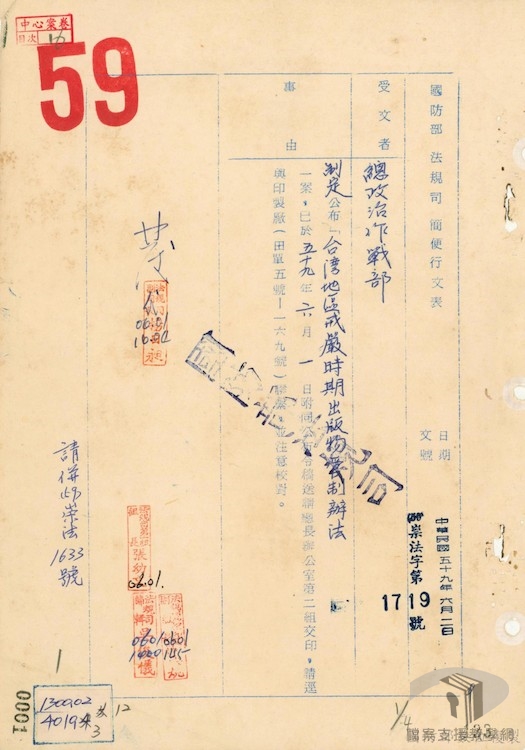 中心案卷
目次
59
國防部 法規司 簡便行文表
日期
文號
中華民國五十九年六月二日
崇法字第1719號
受文者
總政治作戰部
事由
制定公布「台湾地區戒嚴時期出版物管制辦法
一案，已於五十九年六月一日附同公布令稿送請總長辦公室第二組交印，請逕
與印製廠(田單五號—一六九號)聯繫，並注意校對。
國防部法規司
0601
張
0601
0601
1000
1145
請併59崇法1633號
1
130902
4019
12
3
1/4
0001
檔案支援教學網